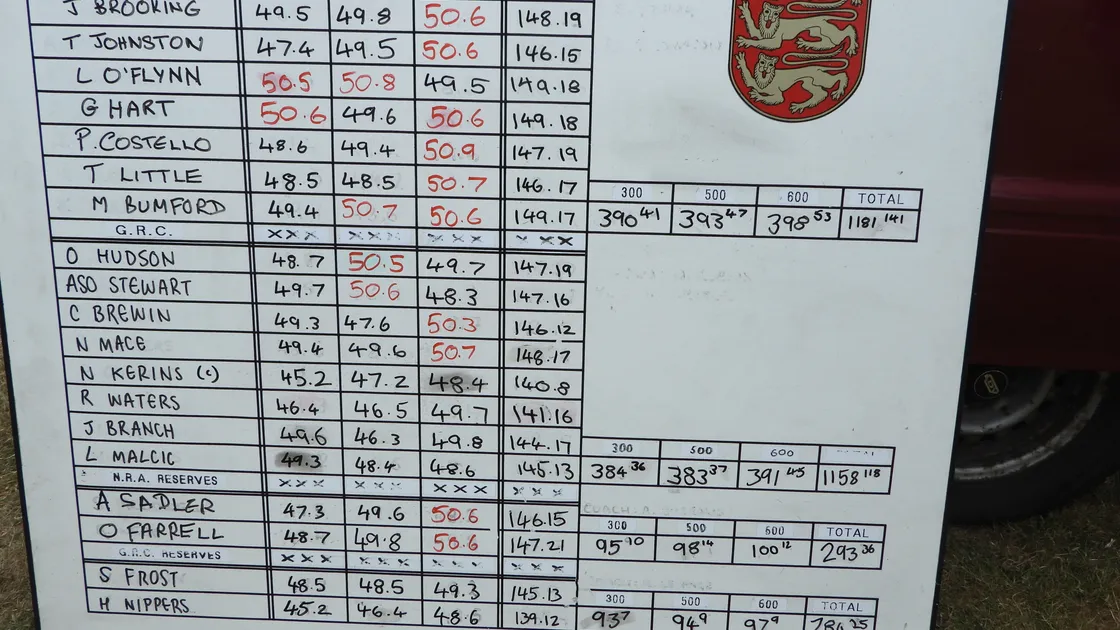 J BROOKING 49.5 49.8 50.6 148.19
T JOHNSTON 47.4 49.5 50.6 146.15
L O'FLYNN 50.5 50.8 49.5 149.18
G HART 50.6 49.6 50.6 149.18
P. COSTELLO 48.6 49.4 50.9 147.19
T LITTLE 48.5 48.5 50.7 146.17
300 500 600 TOTAL
M BUMFORD 49.4 50.7 50.6 149.17 390 41 393 47 398 53 1181 141
G.R.C. XXX XXX XXX XXX
O HUDSON 48.7 50.5 49.7 147.19
ASO STEWART 49.7 50.6 48.3 147.16
C BREWIN 49.3 47.6 50.3 146.12
N MACE 49.4 49.6 50.7 148.17
N KERINS (c) 45.2 47.2 48.4 140.8
R WATERS 46.4 46.5 49.7 141.16
J BRANCH 49.6 46.3 49.8 144.17
300 500 600
L MALCIC 49.3 48.4 48.6 145.13 384 36 383 37 391 45 1158 118
N.R.A. RESERVES XXX XXX XXX XXX
A SADLER 47.3 49.6 50.6 146.15
300 500 600 TOTAL
O FARRELL 48.7 49.8 50.6 147.21 95 10 98 14 100 12 293 36
G.R.C. RESERVES XXX XXX XXX XXX
S FROST 48.5 48.5 49.3 145.13
300 500 600 TOTAL
H NIPPERS 45.2 46.4 48.6 139.12 93 7 94 9 97 9 284 25